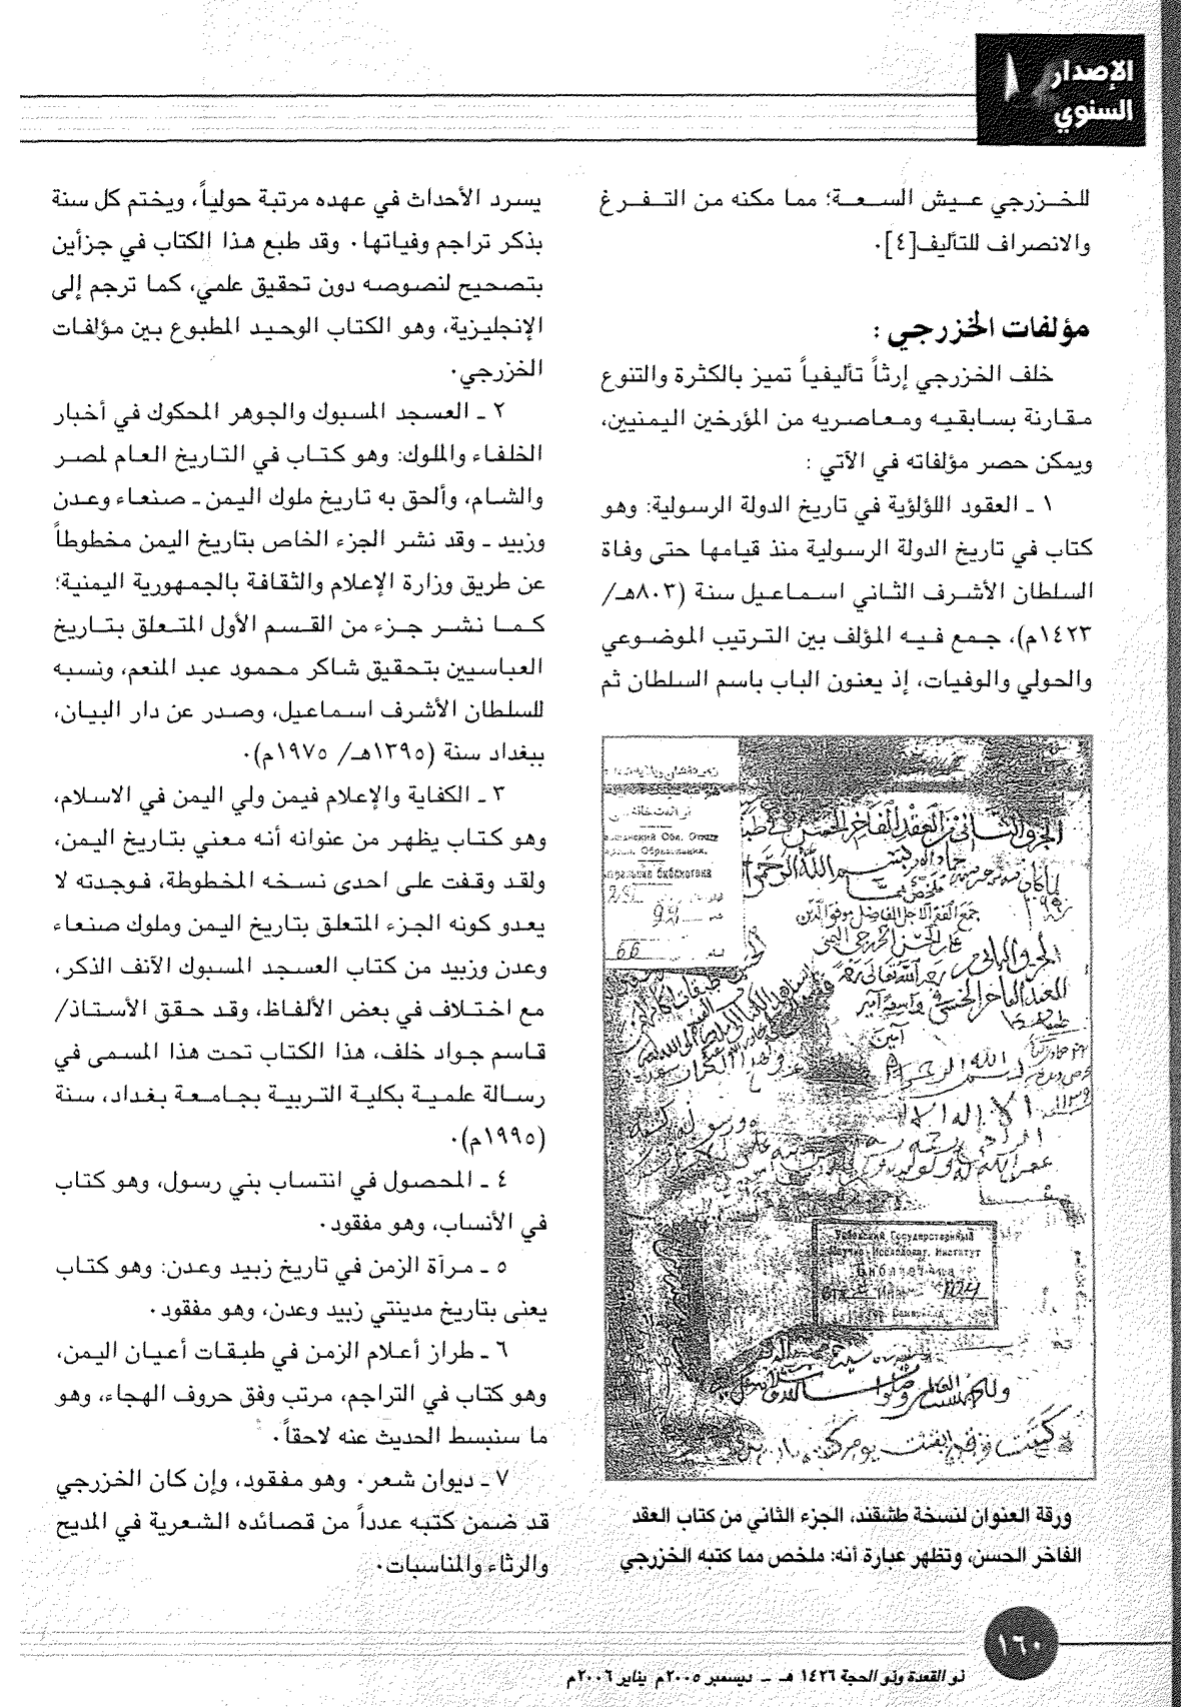 الإصدار
السنوي
للخزرجي عيش السعة؛ مما مكنه من التفرغ
والانصراف للتأليف[٤].
مؤلفات الخزرجي :
خلف الخزرجي إرثاً تأليفياً تميز بالكثرة والتنوع
مقارنة بسابقيه ومعاصريه من المؤرخين اليمنيين،
ويمكن حصر مؤلفاته في الآتي :
١ ـ العقود اللؤلؤية في تاريخ الدولة الرسولية: وهو
كتاب في تاريخ الدولة الرسولية منذ قيامها حتى وفاة
السلطان الأشرف الثاني اسماعيل سنة (٨٠٣هـ/
١٤٢٣م)، جمع فيه المؤلف بين الترتيب الموضوعي
والحولي والوفيات، إذ يعنون الباب باسم السلطان ثم
الجزو الثاني من العقد الفاخر الحسن في
بسم الله الرحمن
آمين
Библиотека
ورقة العنوان لنسخة طشقند، الجزء الثاني من كتاب العقد
الفاخر الحسن، وتظهر عبارة أنه: ملخص مما كتبه الخزرجي
يسرد الأحداث في عهده مرتبة حولياً، ويختم كل سنة
بذكر تراجم وفياتها. وقد طبع هذا الكتاب في جزأين
بتصحيح لنصوصه دون تحقيق علمي، كما ترجم إلى
الإنجليزية، وهو الكتاب الوحيد المطبوع بين مؤلفات
الخزرجي.
٢ ـ العسجد المسبوك والجوهر المحكوك في أخبار
الخلفاء والملوك: وهو كتاب في التاريخ العام لمصر
والشام، وألحق به تاريخ ملوك اليمن ـ صنعاء وعدن
وزبيد ـ وقد نشر الجزء الخاص بتاريخ اليمن مخطوطاً
عن طريق وزارة الإعلام والثقافة بالجمهورية اليمنية؛
كما نشر جزء من القسم الأول المتعلق بتاريخ
العباسيين بتحقيق شاكر محمود عبد المنعم، ونسبه
للسلطان الأشرف اسماعيل، وصدر عن دار البيان،
ببغداد سنة (١٣٩٥هـ/ ١٩٧٥م).
٣ ـ الكفاية والإعلام فيمن ولي اليمن في الاسلام،
وهو كتاب يظهر من عنوانه أنه معني بتاريخ اليمن،
ولقد وقفت على احدى نسخه المخطوطة، فوجدته لا
يعدو كونه الجزء المتعلق بتاريخ اليمن وملوك صنعاء
وعدن وزبيد من كتاب العسجد المسبوك الآنف الذكر،
مع اختلاف في بعض الألفاظ، وقد حقق الأستاذ/
قاسم جواد خلف، هذا الكتاب تحت هذا المسمى في
رسالة علمية بكلية التربية بجامعة بغداد، سنة
(١٩٩٥م).
٤ ـ المحصول في انتساب بني رسول، وهو كتاب
في الأنساب، وهو مفقود.
٥ ـ مرآة الزمن في تاريخ زبيد وعدن: وهو كتاب
يعنى بتاريخ مدينتي زبيد وعدن، وهو مفقود.
٦ ـ طراز أعلام الزمن في طبقات أعيان اليمن،
وهو كتاب في التراجم، مرتب وفق حروف الهجاء، وهو
ما سنبسط الحديث عنه لاحقاً.
٧ ـ ديوان شعر. وهو مفقود، وإن كان الخزرجي
قد ضمن كتبه عدداً من قصائده الشعرية في المديح
والرثاء والمناسبات.
١٦٠
ذو القعدة وذو الحجة ١٤٢٦ هـ ـ ديسمبر ٢٠٠٥م يناير ٢٠٠٦م